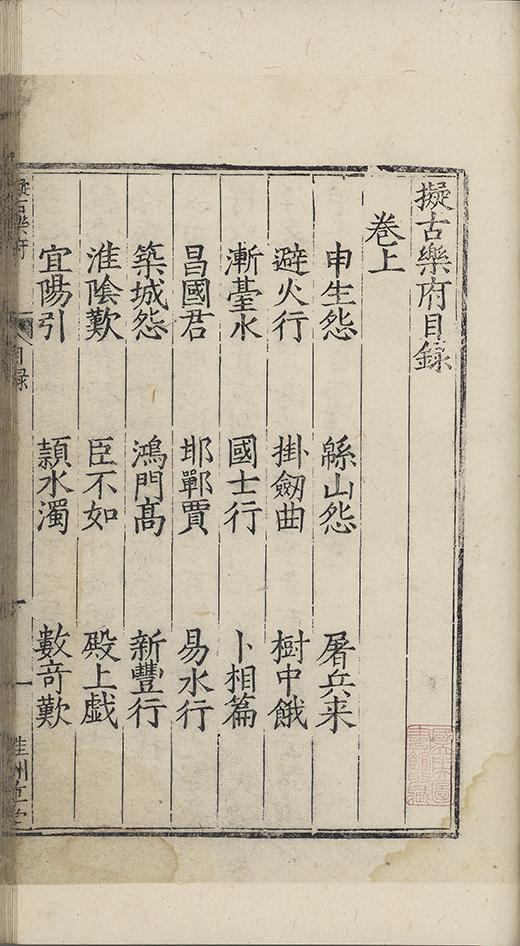 擬古樂府目錄
卷上
申生怨 緜山怨 屠兵来
避火行 掛劒曲 樹中餓
漸臺水 國士行 卜相篇
昌國君 邯鄲賈 易水行
築城怨 鴻門高 新豐行
淮陰歎 臣不如 殿上戯
宜陽引 頴水濁 數竒歎
擬古樂府 目録